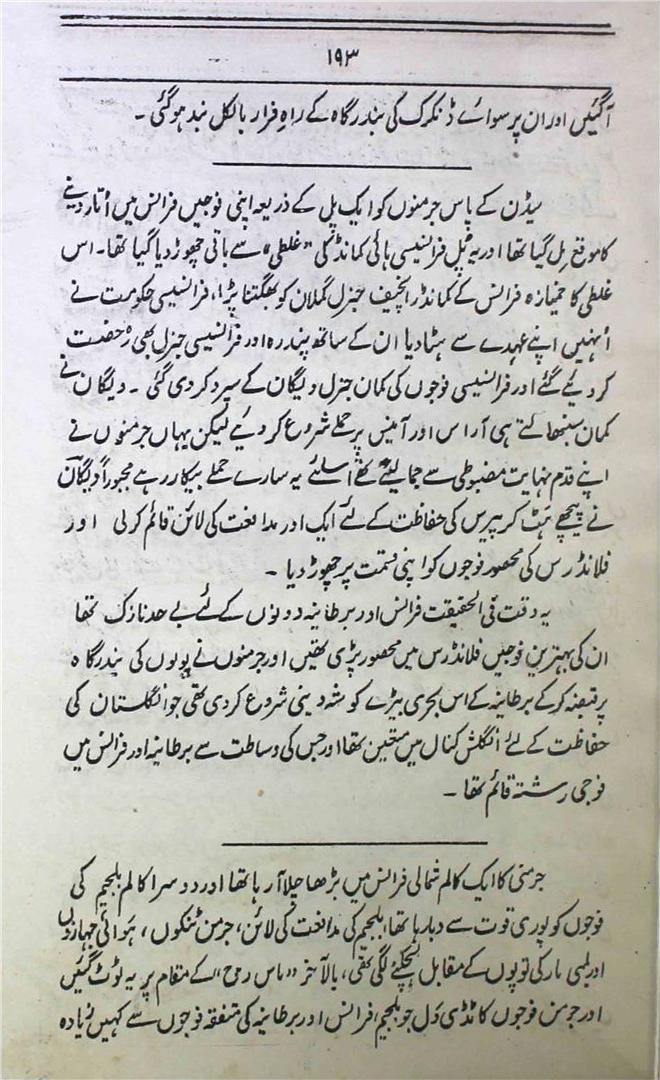 ۱۹۳
آگئیں اور ان پر سوائے ڈنکرک کی بندرگاہ کے راہِ فرار بالکل بند ہو گئی ۔
سیڈن کے پاس جرمنوں کو ایک پل کے ذریعہ اپنی فوجیں فرانس میں اُتار دینے
کا موقع مِل گیا تھا اور یہ پُل فرانسیسی ہائی کمانڈ کی ”غلطی“ سے باقی چھوڑ دیا گیا تھا۔ اس
غلطی کا خمیازہ فرانس کے کمانڈر انچیف جنرل گملان کو بھگتنا پڑا، فرانسیسی حکومت نے
اُنہیں اپنے عہدے سے ہٹا دیا ان کے ساتھ پندرہ اور فرانسیسی جنرل بھی رخصت
کر دیئے گئے اور فرانسیسی فوجوں کی کمان جنرل ویگان کے سپرد کر دی گئی ۔ ویگان نے
کمان سنبھالتے ہی آراس اور آمنیس پر حملے شروع کر دیئے لیکن یہاں جرمنوں نے
اپنے قدم نہایت مضبوطی سے جما لیئے تھے اسلئے یہ سارے حملے بیکار رہے مجبوراً ویگان
نے پیچھے ہٹ کر پیرس کی حفاظت کے لئے ایک اور مدافعت کی لائن قائم کر لی اور
فلانڈرس کی محصور فوجوں کو اپنی قسمت پر چھوڑ دیا ۔
یہ وقت فی الحقیقت فرانس اور برطانیہ دونوں کے لئے بے حد نازک تھا
ان کی بہترین فوجیں فلانڈرس میں محصور پڑی تھیں اور جرمنوں نے بولوں کی بندرگاہ
پر قبضہ کر کے برطانیہ کے اس بحری بیڑے کو شہ دینی شروع کر دی تھی جو انگلستان کی
حفاظت کے لئے انگلش کنال میں متعین تھا اور جس کی وساطت سے برطانیہ اور فرانس میں
فوجی رشتہ قائم تھا ۔
جرمنی کا ایک کالم شمالی فرانس میں بڑھا چلا آ رہا تھا اور دوسرا کالم بلجیم کی
فوجوں کو پوری قوت سے دبا رہا تھا، بلجیم کی مدافعت کی لائن، جرمن ٹنکوں، ہوائی جہازوں
اور لمبی مار کی توپوں کے مقابل لچکنے لگی تھی، بالآخر ”ماس رح“ کے مقام پر یہ ٹوٹ گئیں
اور جرمن فوجوں کا ٹڈی دَل جو بلجیم، فرانس اور برطانیہ کی متفقہ فوجوں سے کہیں زیادہ